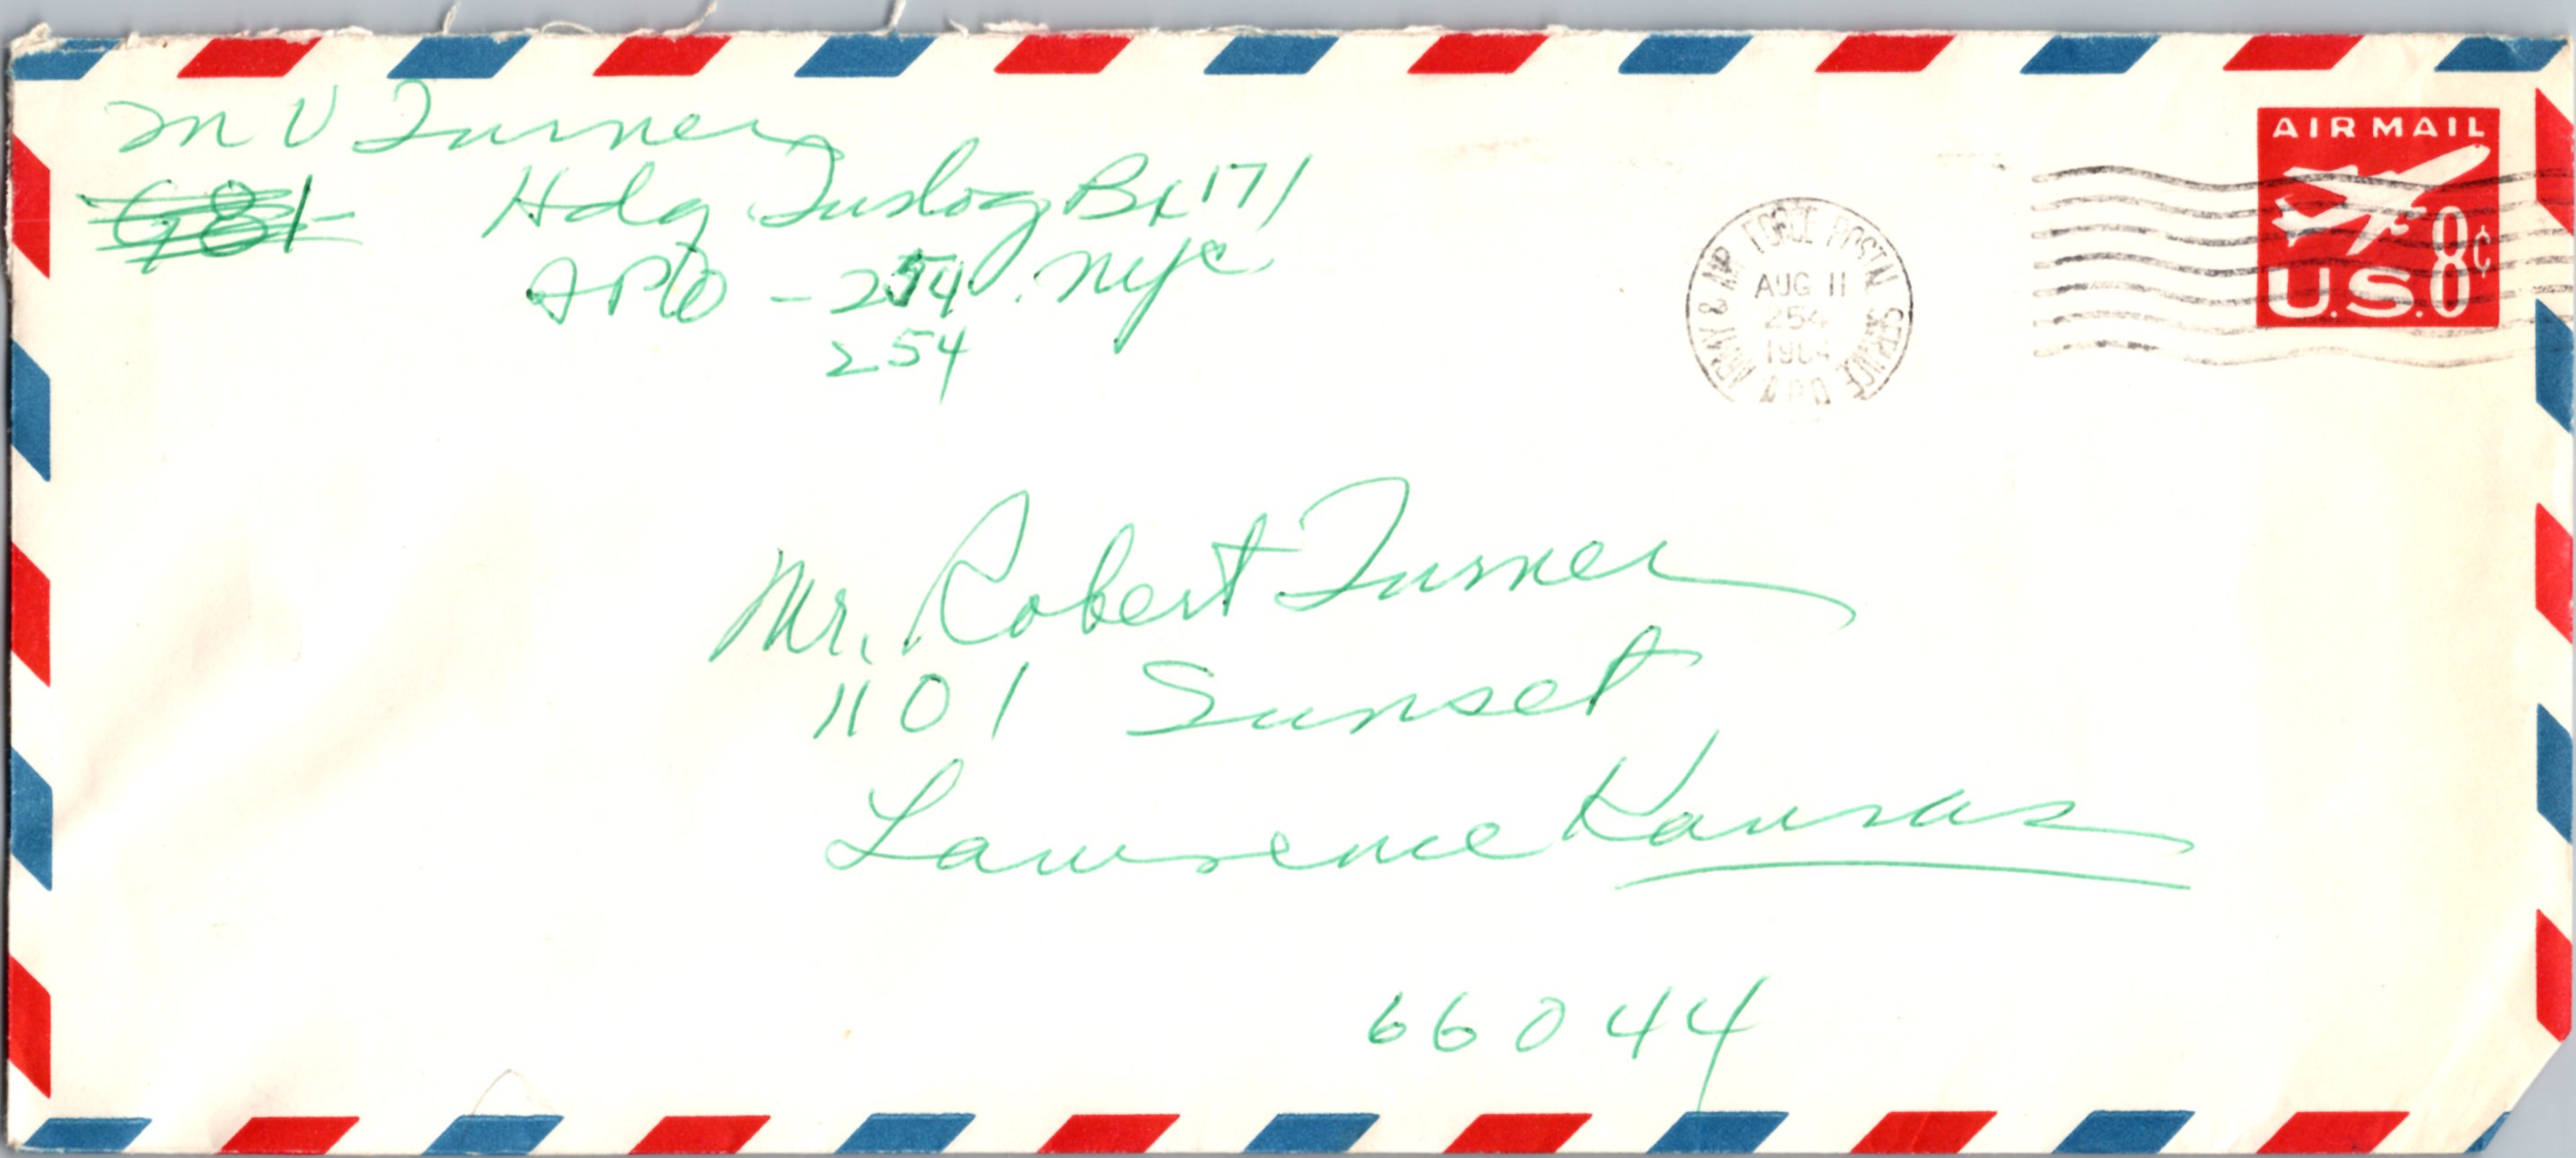 M V Turner
G81 Hdq Tuslog Bx 171
APO - 254 NYC
254
ARMY & AIR FORCE POSTAL SERVICE
AUG 11
254
1964
APO
AIR MAIL
8¢
U.S.
Mr. Robert Turner
1101 Sunset
Lawrence Kansas
66044